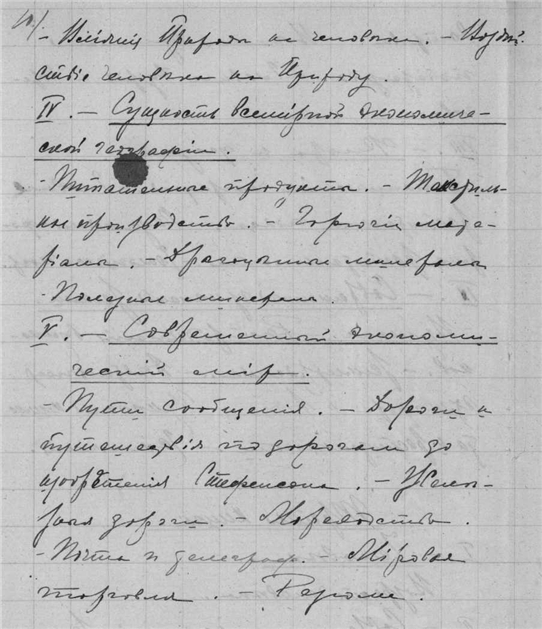 - Влiянiя Природы на человека. - Воздѣй-
ствiе человека на Природу.
IV. - Сущность всемiрной экономиче-
ской географiи.
- Питательные продукты. - Текстиль-
ное производство. - Горючiе мате-
рiалы. - Драгоценные минералы
- Полезные минералы.
V. - Современный экономи-
ческiй мiр.
- Пути сообщенiя. - Дороги и
путешествiя по дорогам до
изобрѣтенiя Стефенсона. - Желѣз-
ныя дороги. - Мореходство.
- Почта и телеграф. - Мiровая
торговля. -